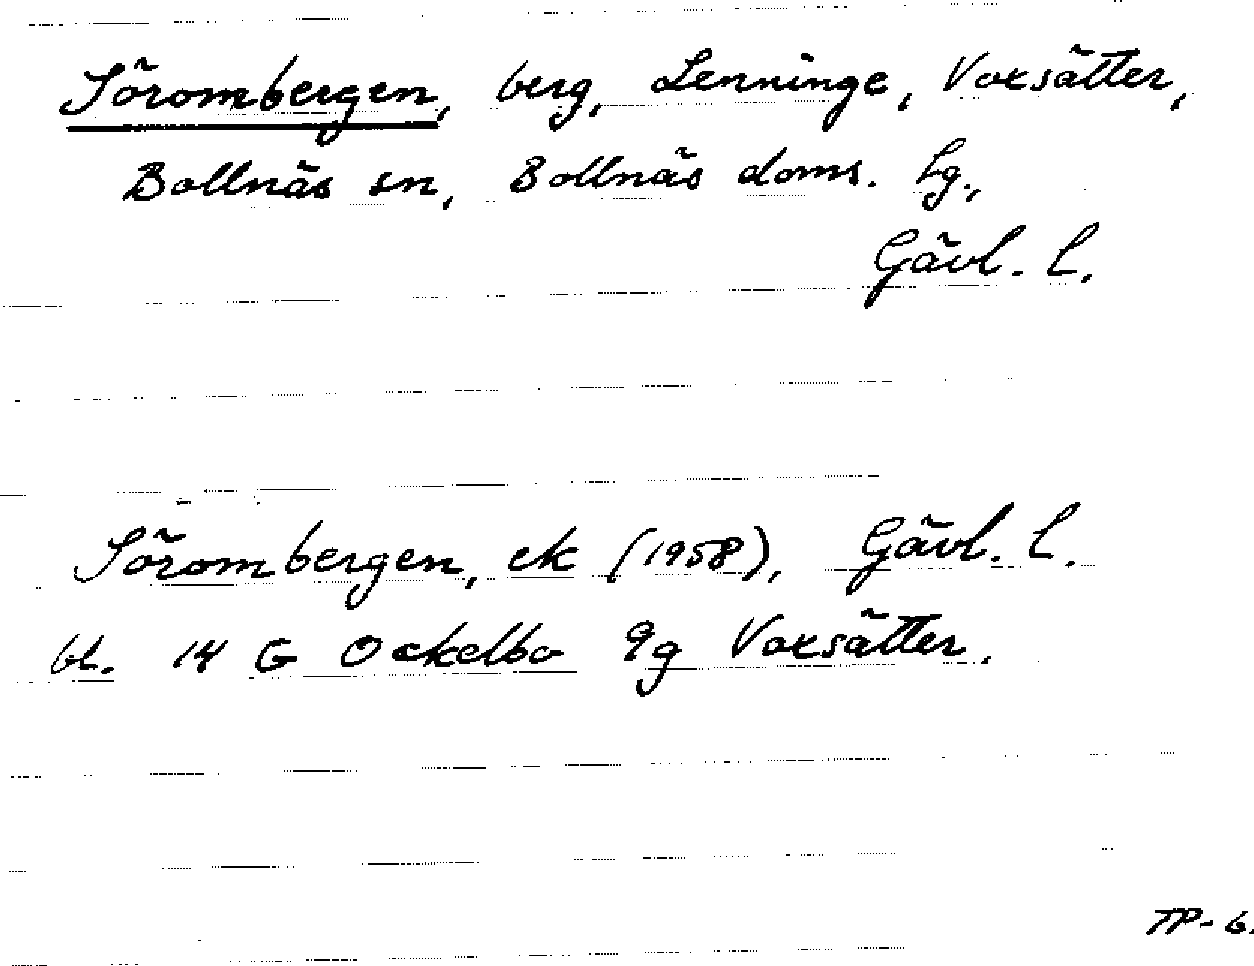 Sörombergen, berg, Lenninge, Voxsätter,
Bollnäs sn, Bollnäs doms. hg.,
Gävl. l.
Sörombergen, ek (1958), Gävl. l.
bl. 14 G Ockelbo 9g Voxsätter.
TP-6.